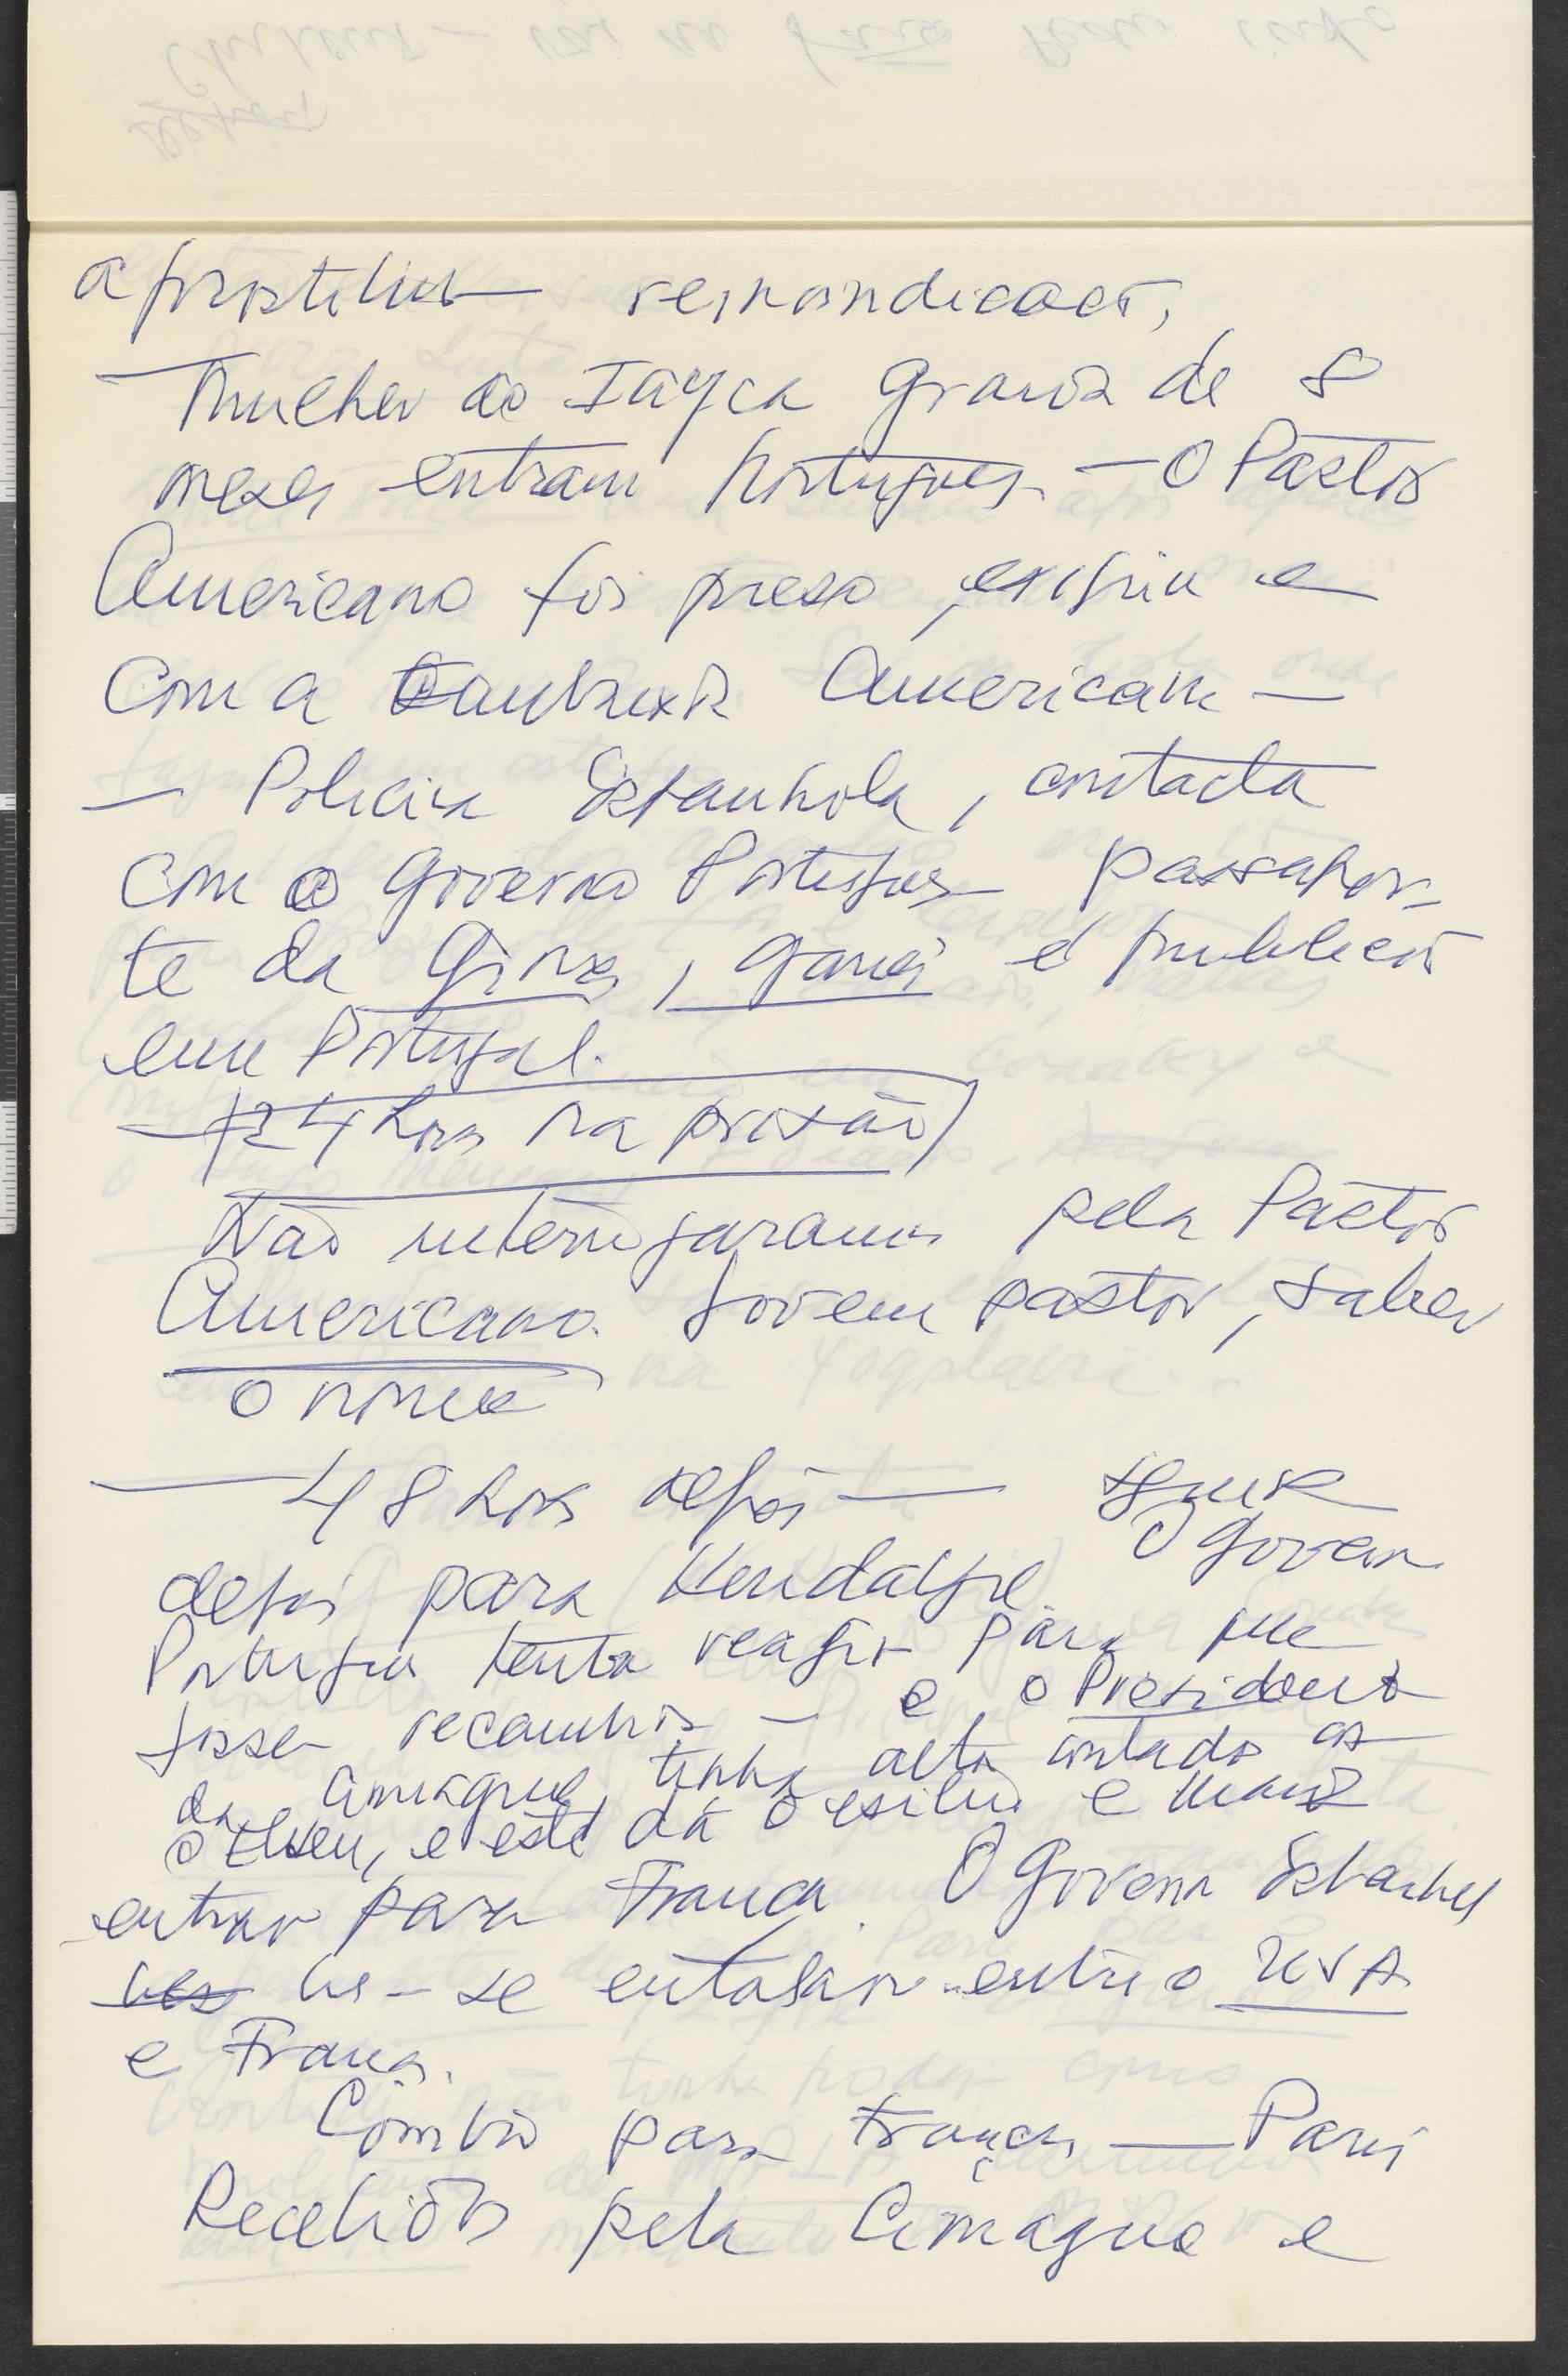 reinvindicação,
mulher do Iayca gravida de 8
meses entram Portugues — O Pastor
Americano foi preso, exigiu e
com a Embaixada Americana —
— Policia Espanhola, contacta
com o Governo Portugues passapor-
te da Guiné, Ganá é publicado
em Portugal.
— (24 horas na prisão)
Não interrogaram pelo Pastor
Americano. Jovem pastor, saber
o nome
— 48 horas depois —
O Governo
depois para Hendaye
Portugues tenta reagir para que
fosse recambio — e o Presidente
da Cimagrue, tinha alto contado as
o Eliseu, e este dá o exilio e manda
entrar para França. O Governo Espanhol
ves ve-se entalado entre o USA
e França.
Comboio para França — Paris
Recebidos pela Cimague e